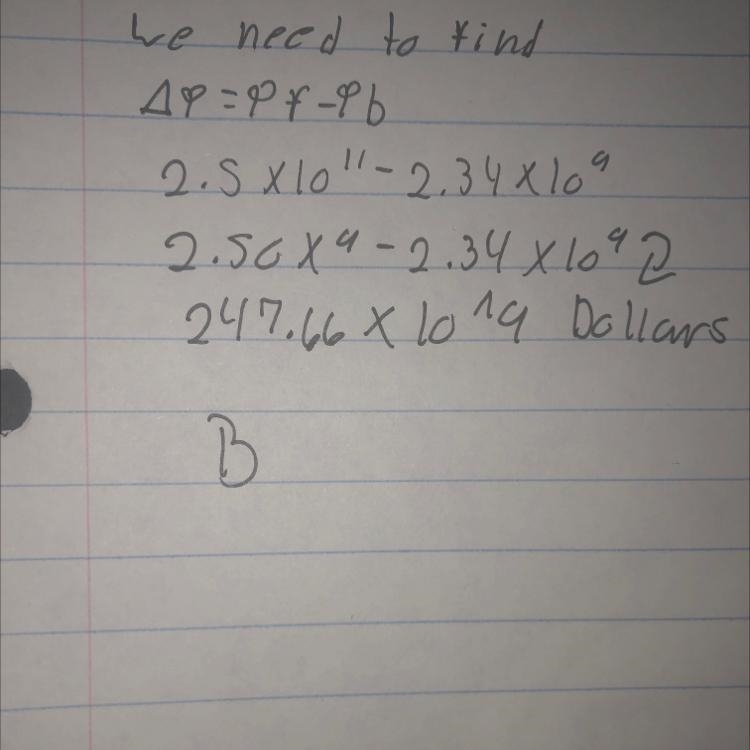 We need to find
Δφ = φf - φb
2.5 x10¹¹ - 2.34 x10⁹
2.50 x⁹ - 2.34 x10⁹
247.66 x 10^9 Dollars
B